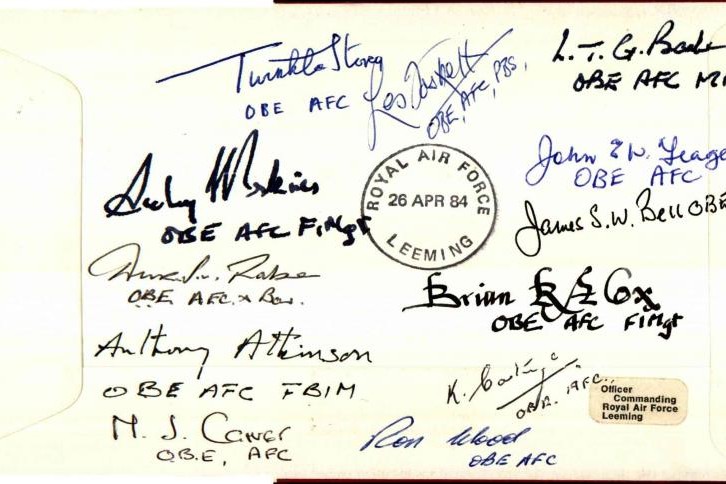 Twinkle Storey
OBE AFC
Les Huskett
OBE, AFC, PBS,
L.T.G. Bade
OBE AFC
OBE AFC FIMgt
ROYAL AIR FORCE
26 APR 84
LEEMING
John E W. Teage
OBE AFC
James S.W. Bell OBE
OBE AFC & Bar.
Brian R Cox
OBE AFC FIMgt
Anthony Atkinson
OBE AFC FBIM
K.
OBE. AFC.
Officer
Commanding
Royal Air Force
Leeming
M. J. Carver
O.B.E, AFC
Ron Wood
OBE AFC